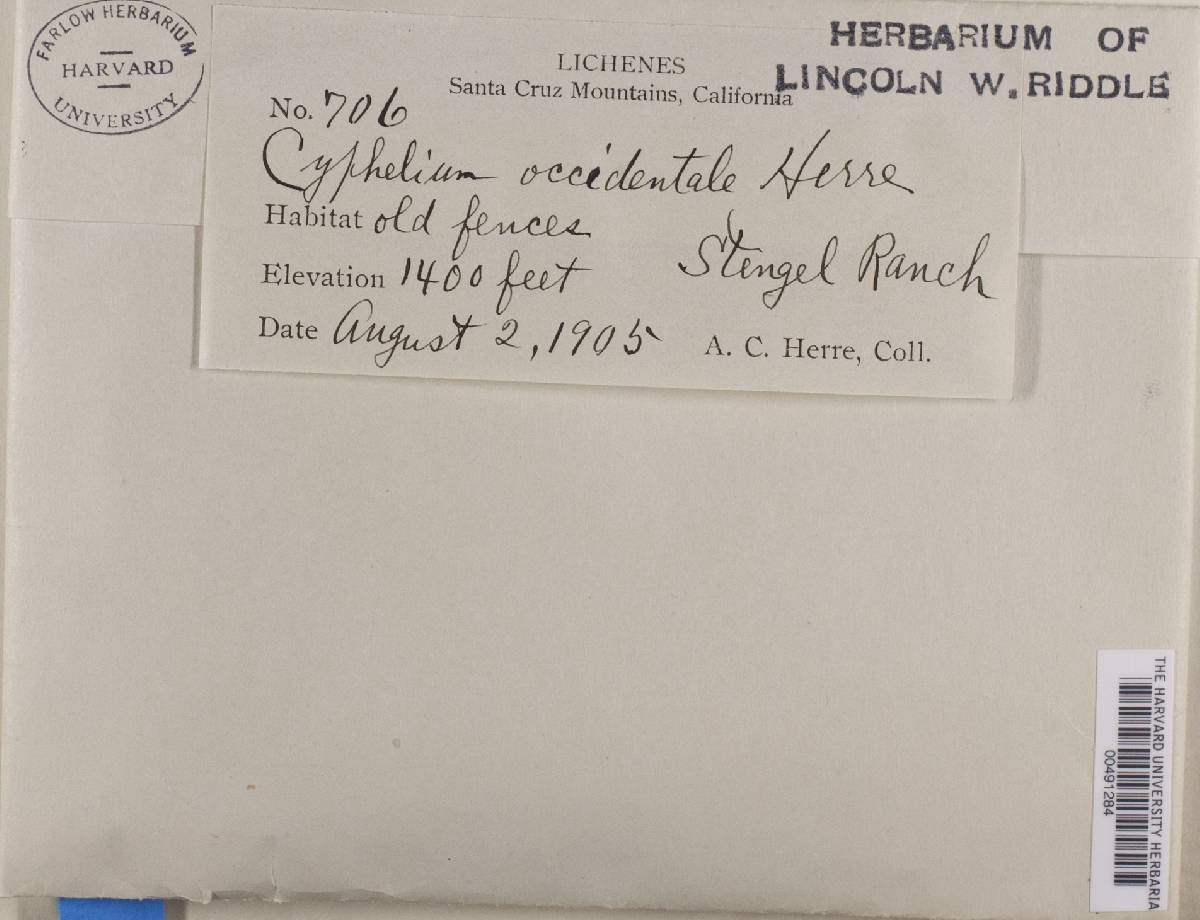 FARLOW HERBARIUM
HARVARD
UNIVERSITY
HERBARIUM OF
LINCOLN W. RIDDLE
LICHENES
Santa Cruz Mountains, California
No. 706
Cyphelium occidentale Herre
Habitat old fences
Stengel Ranch
Elevation 1400 feet
Date August 2, 1905 A. C. Herre, Coll.
THE HARVARD UNIVERSITY HERBARIA
00491284